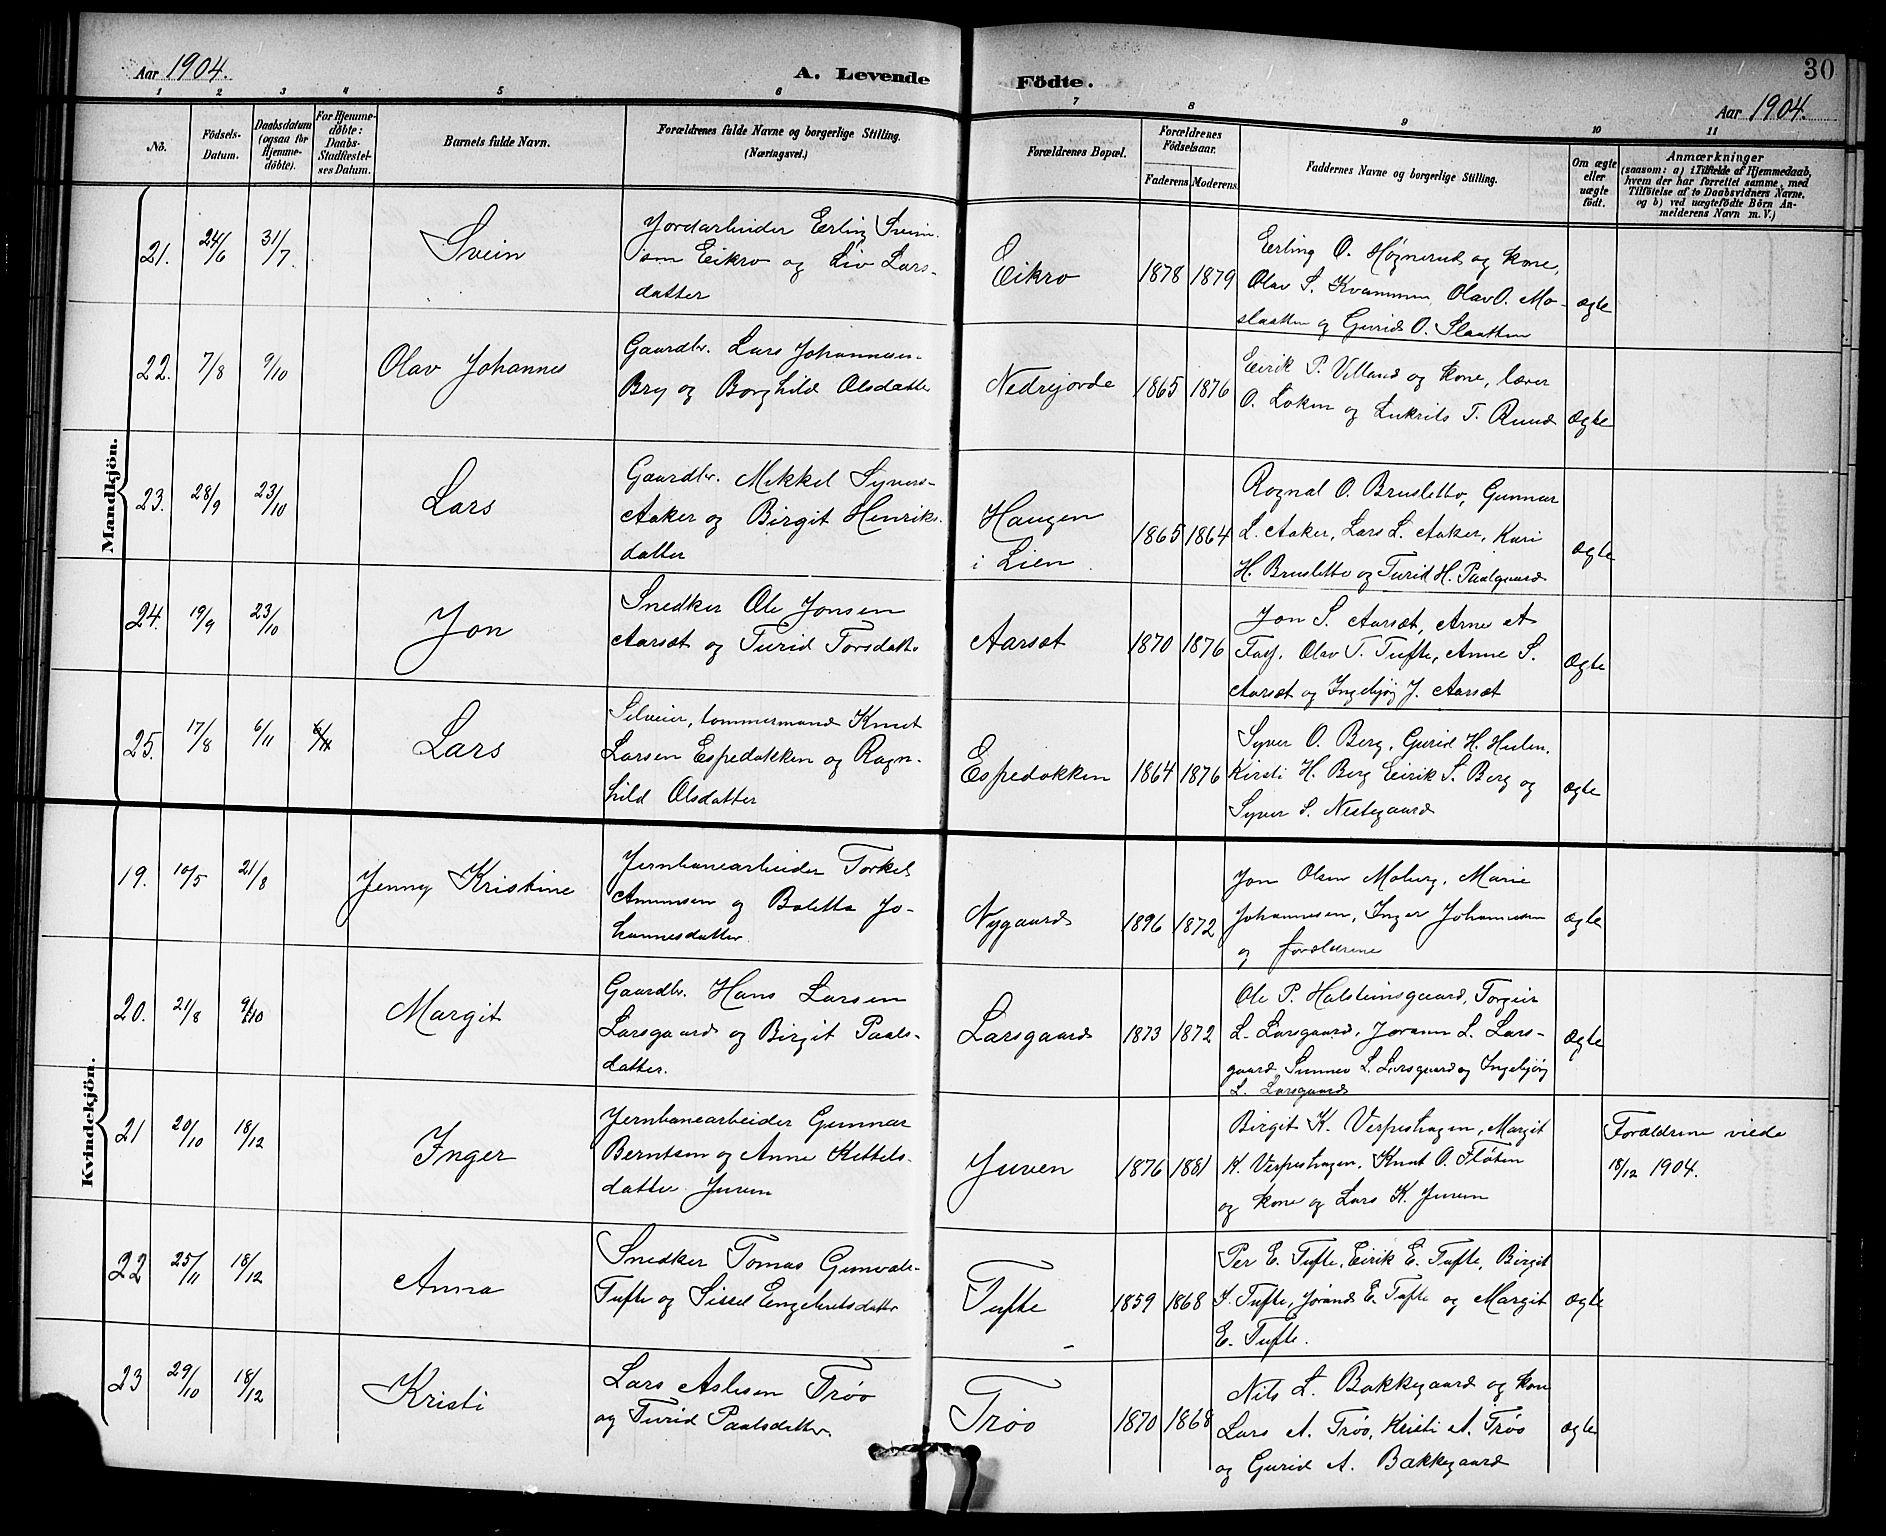 30
Aar 1904.
A. Levende Födte.
Aar 1904.
1 2 3 4 5 6 7 8 9 10 11
No.
Födsels-Datum.
Daabsdatum (ogsaa for Hjemmedöbte).
For Hjemmedöbte: Daabs-Stadfæstelses Datum.
Barnets fulde Navn.
Forældrenes fulde Navne og borgerlige Stilling. (Næringsvei.)
Forældrenes Bopæl.
Forældrenes Födselsaar.
Faderens Moderens.
Faddernes Navne og borgerlige Stilling.
Om ægte eller uægte født.
Anmærkninger
(saasom: a) i Tilfælde af Hjemmedaab,
hvem der har forrettet samme, med
Tilföielse af to Daabsvidners Navne,
og b) ved uægtefödte Börn An-
melderens Navn m. V.)
Mandkjön.
21. 24/6 31/7 Svein
Jordarbeider Erling Svein-
Eikro og Liv Lars-
datter
Eikro 1878 1879
Erling O. Høgnerud og kone,
Olav S. Kvammen, Olav O. Mo-
slaatten og Gurid O. Slaatten
ægte
22. 7/8 9/10 Olav Johannes
Gaardbr. Lars Johannesen
Bry og Borghild Olsdatter
Nedrejorde 1865 1876
Eirik P. Villand og kone, lærer
O. Loken og T. Ruud
Ægte
23. 28/9 23/10 Lars
Gaardbr. Mikkel Syvers-
Aaker og Birgit Henriks-
datter
Haugen
i Lien
1865 1864
Rognal O. Brusletto, Gunnar
L. Aaker, Lars L. Aaker, Kari
H. Brusletto og Turid H. Paalgaard
ægte
24. 19/9 23/10 Jon
Snedker Ole Jonsen
Aarset og Turid Torsdatter
Aarset 1870 1876
Jon S. Aarset, Arne A
Olav T. Tufte, Anne S.
Aarset og Ingebjøg J. Aarset
Ægte
25. 17/8 6/11 6/11 Lars
Selveier, tømmermand Knut
Larsen Espedokken og Ragn-
hild Olsdatter
Espedokken 1864 1876
Syver O. Berg, Gurid H.
Kirsti H. Berg Eirik S. Berg og
Syver S. Nestegaard
ægte
Kvindekjön.
19. 10/5 21/8 Jenny Kristine
Jernbanearbeider Torkel
Amunsen og Boletta Jo-
hannesdatter
Nygaard 1896 1872
Jon Olsen Moberg, Marie
Johannesen, Inger Johannesen
og forældrene
ægte
20. 21/8 9/10 Margit
Gaardbr. Hans Larsen
Larsgaard og Birgit Paals-
datter.
Larsgaard 1873 1872
Ole P. Halsteinsgaard, Torgeir
L. Larsgaard, Jorann L. Lars-
gaard, Sunnev L. Larsgaard og Ingebjøg
L. Larsgaard
Ægte
21 20/10 18/12 Inger
Jernbanearbeider Gunnar
Berntsen og Anne Kittels-
datter Juven
Juven 1876 1881
Birgit K. Verpestuen, Margit
K. Verpestuen, Knut O. Fløten
og kone og Lars K. Juven
Forældrene viede
18/12 1904.
22 25/11 18/12 Anna
Snedker Tomas Gunvals-
Tufte og Sissel Engebretsdatter
Tufte 1859 1868
Per E. Tufte, Eirik E. Tufte, Birgit
K. Tufte, Jørand E. Tufte og Margit
E. Tufte.
Ægte
23 29/10 18/12 Kristi
Lars Aslesen Trøo
og Turid Paalsdatter.
Trøo 1870 1868
Nils L. Bakkegaard og kone
Lars A. Trøo, Kristi A. Trøo
og Gurid A. Bakkegaard
ægte